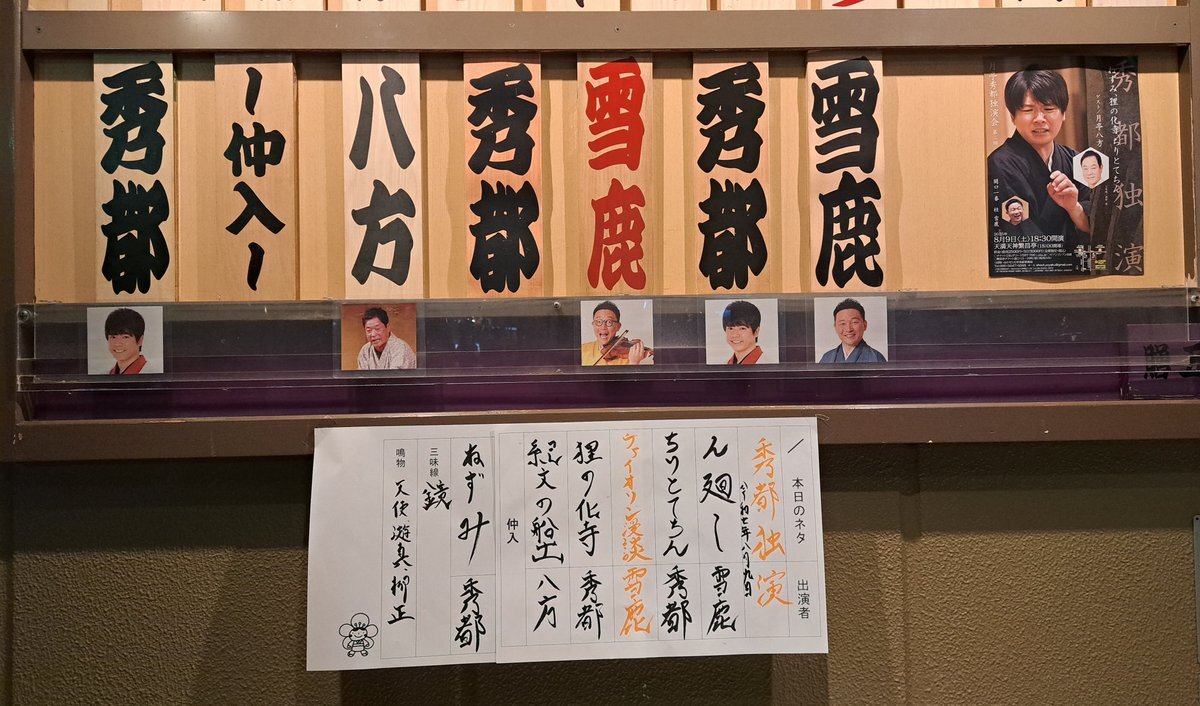 秀都独演
ゲスト 月亭八方
開口一番 桂 雪鹿
8月9日(土)18:30開演
天満天神繁昌亭(18:00開場)
雪鹿
秀都
雪鹿
秀都
八方
~仲入~
秀都
/ 本日のネタ 出演者
秀都独演
令和七年八月九日
ん廻し 雪鹿
ちりとてちん 秀都
ヴァイオリン漫談 雪鹿
狸の化寺 秀都
紀文の船出 八方
仲入
ねずみ 秀都
三味線 鏡
鳴物 天使、遊真、柳正